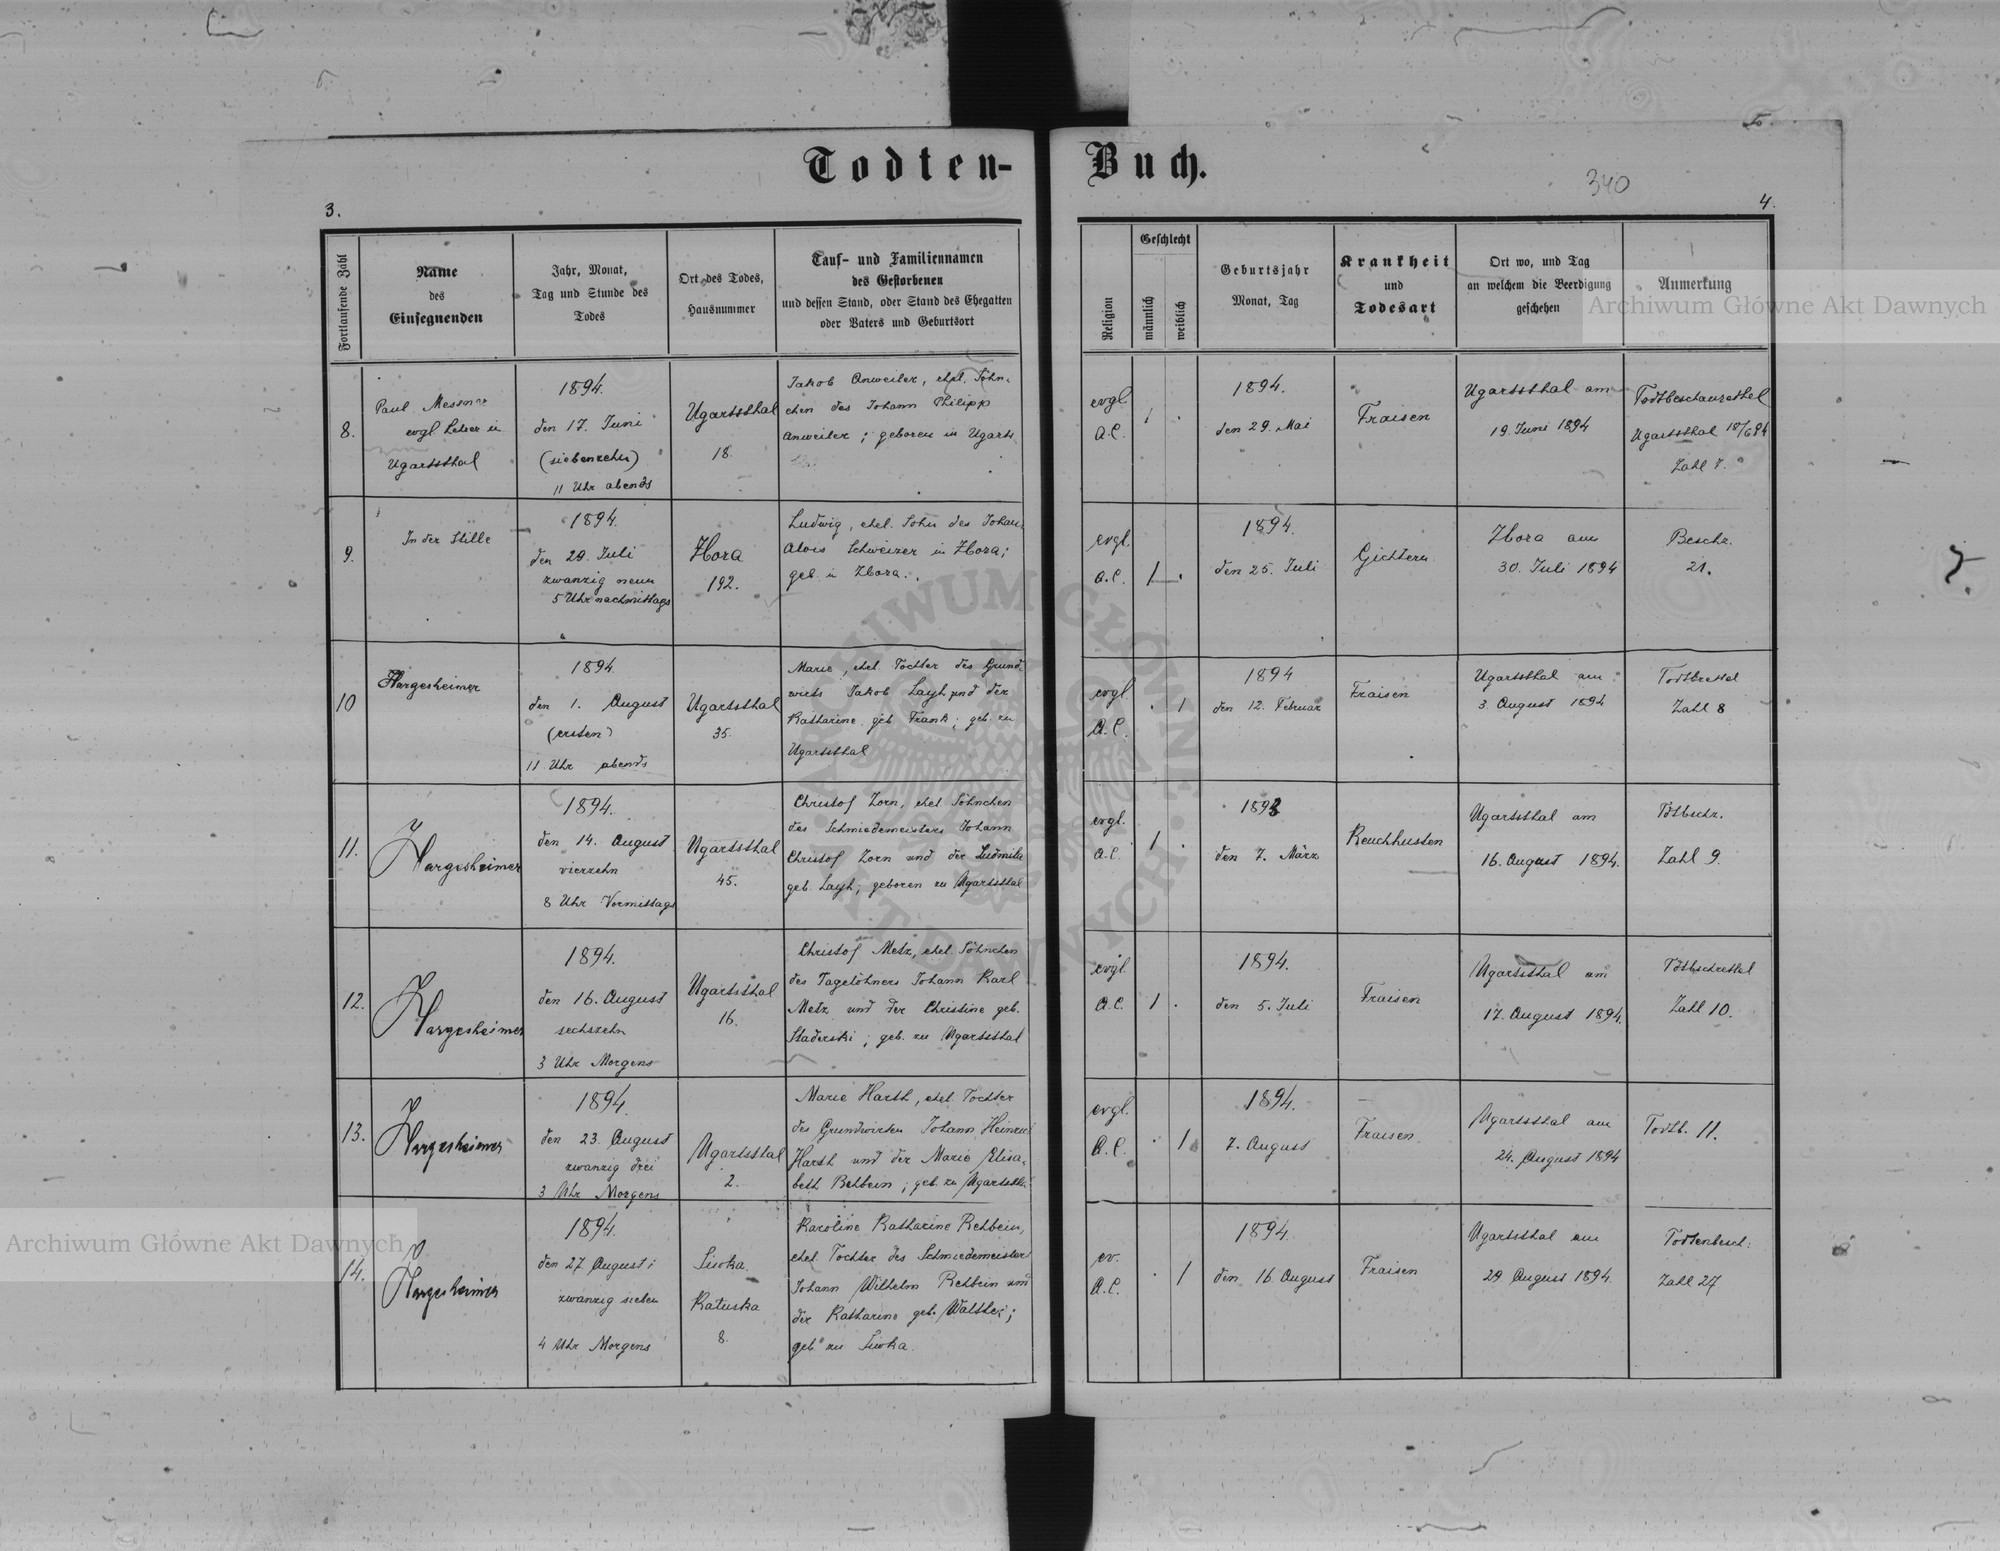 Todten-Buch.
340
3.
4.
Fortlaufende Zahl
Name
des
Einsegnenden
Jahr, Monat,
Tag und Stunde des
Todes
Ort des Todes,
Hausnummer
Tauf- und Familiennamen
des Gestorbenen
und dessen Stand, oder Stand des Ehegatten
oder Vaters und Geburtsort
Religion
Geschlecht
männlich
weiblich
Geburtsjahr
Monat, Tag
Krankheit
und
Todesart
Ort wo, und Tag
an welchem die Beerdigung
geschehen
Anmerkung
8.
Paul Messner
evgl. Lehrer in
Ugartsthal
1894.
den 17. Juni
(siebenzehn)
11 Uhr abends
Ugartsthal
18.
Jakob Anweiler, ehel. Söhn-
chen des Johann Philipp
Anweiler; geboren in Ugarts
evgl.
A.C.
1 .
1894.
den 29. Mai
Fraisen
Ugartsthal am
19. Juni 1894
Todtbeschauzettel
Ugartsthal 18/6 94
Zahl 7.
9.
In der Stille
1894.
den 29. Juli
zwanzig neun
5 Uhr nachmittags
Zbora
192.
Ludwig, ehel. Sohn des Johan
Alois Schweizer in Zbora;
geb. in Zbora.
evgl.
A.C.
1 .
1894.
den 25. Juli
Gichtern
Zbora am
30. Juli 1894
Beschz.
21.
10
Hargesheimer
1894
den 1. August
(ersten)
11 Uhr abends
Ugartsthal
35.
Marie, ehel. Tochter des Grund-
wirts Jakob Layh und der
Katharine geb. Frank; geb. zu
Ugartsthal
evgl.
A.C.
. 1
1894
den 12. Februar
Fraisen
Ugartsthal am
3. August 1894
Todtbzettel
Zahl 8
11.
Hargesheimer
1894.
den 14. August
vierzehn
8 Uhr Vormittags
Ugartsthal
45.
Christof Zorn, ehel. Söhnchen
des Schmiedemeisters Johann
Christof Zorn und der Ludmila
geb. Layh; geboren zu Ugartsthal
evgl.
A.C.
1 .
1893
den 7. März
Keuchhusten
Ugartsthal am
16. August 1894.
Tdtbschz.
Zahl 9.
12.
Hargesheimer
1894.
den 16. August
sechszehn
3 Uhr Morgens
Ugartsthal
16.
Christof Metz, ehel. Söhnchen
des Tagelöhners Johann Karl
Metz und der Christine geb.
Staderski; geb. zu Ugartsthal
evgl.
A.C.
1 .
1894.
den 5. Juli
Fraisen
Ugartsthal am
17. August 1894.
Tdtbschzettel
Zahl 10.
13.
Hargesheimer
1894
den 23. August
zwanzig drei
3 Uhr Morgens
Ugartsthal
2.
Marie Harth, ehel. Tochter
des Grundwirten Johann Heinrich
Harth und der Marie Elisa-
beth Rehbein; geb. zu Ugartsthl.
evgl.
A.C.
. 1
1894.
7. August
Fraisen
Ugartsthal am
24. August 1894
Todtb. 11.
14.
Hargesheimer
1894.
den 27 August;
zwanzig sieben
4 Uhr Morgens
Siwka
Katuska
8.
Karoline Katharine Rehbein,
ehel. Tochter des Schmiedemeisters
Johann Wilhelm Rehbein und
der Katharine geb. Walther;
geb. zu Siwka.
ev.
A.C.
. 1
1894.
den 16. August
Fraisen
Ugartsthal am
29 August 1894.
Todtenbesch.
Zahl 27
Archiwum Główne Akt Dawnych
Archiwum Główne Akt Dawnych
ARCHIWUM GŁÓWNE · AKT DAWNYCH ·